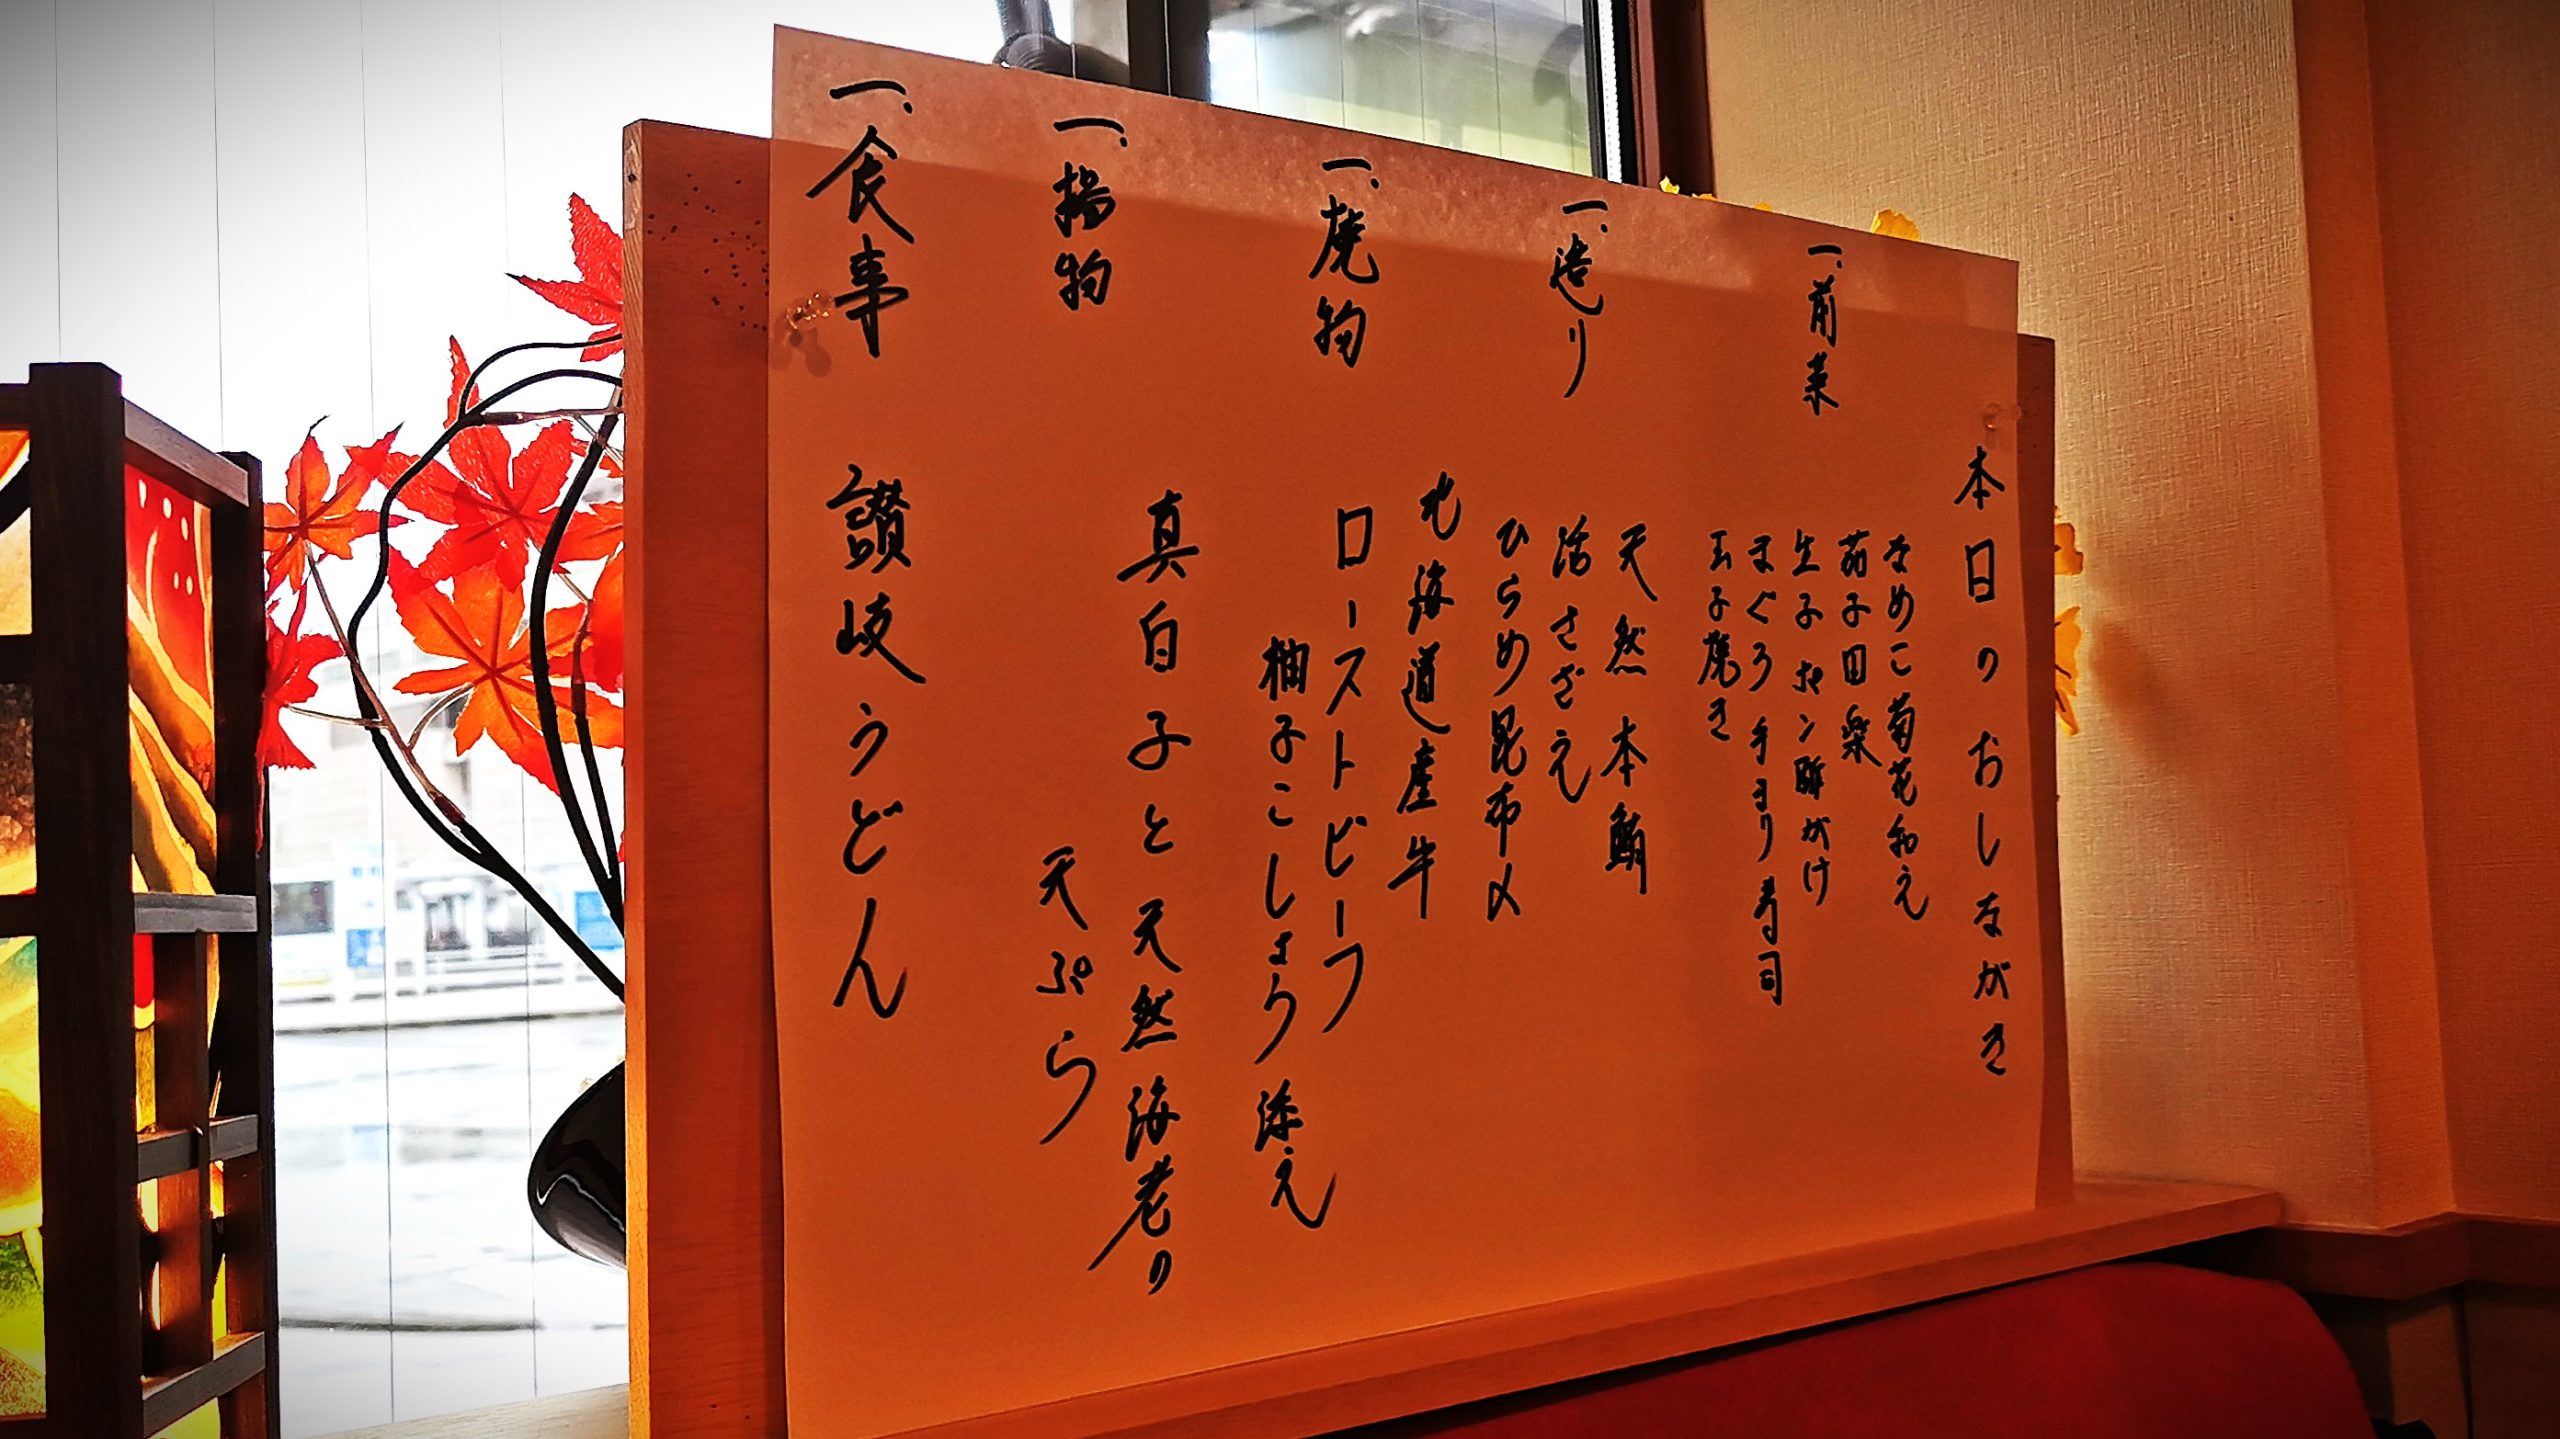 本日のおしながき
一、前菜
なめこ菊花和え
茄子田楽
生子ポン酢がけ
まぐろ手まり寿司
玉子焼き
一、造り
天然本鮪
活さざえ
ひらめ昆布〆
一、焼物
北海道産牛
ローストビーフ
柚子こしょう添え
一、揚物
真白子と天然海老の
天ぷら
一、食事
讃岐うどん